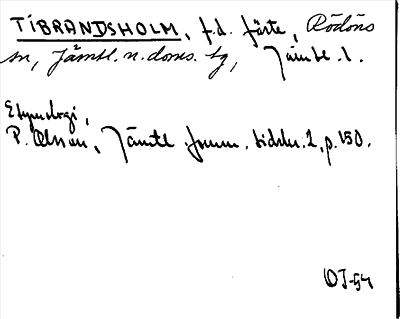 TIBRANDSHOLM, f.d. färte, Rödöns
sn, Jämtl. n. doms. tg, Jämtl. l.
Etymologi,
P. Olsson, Jämtl. fornm. tidskr. 2, p. 150.
OJ-54